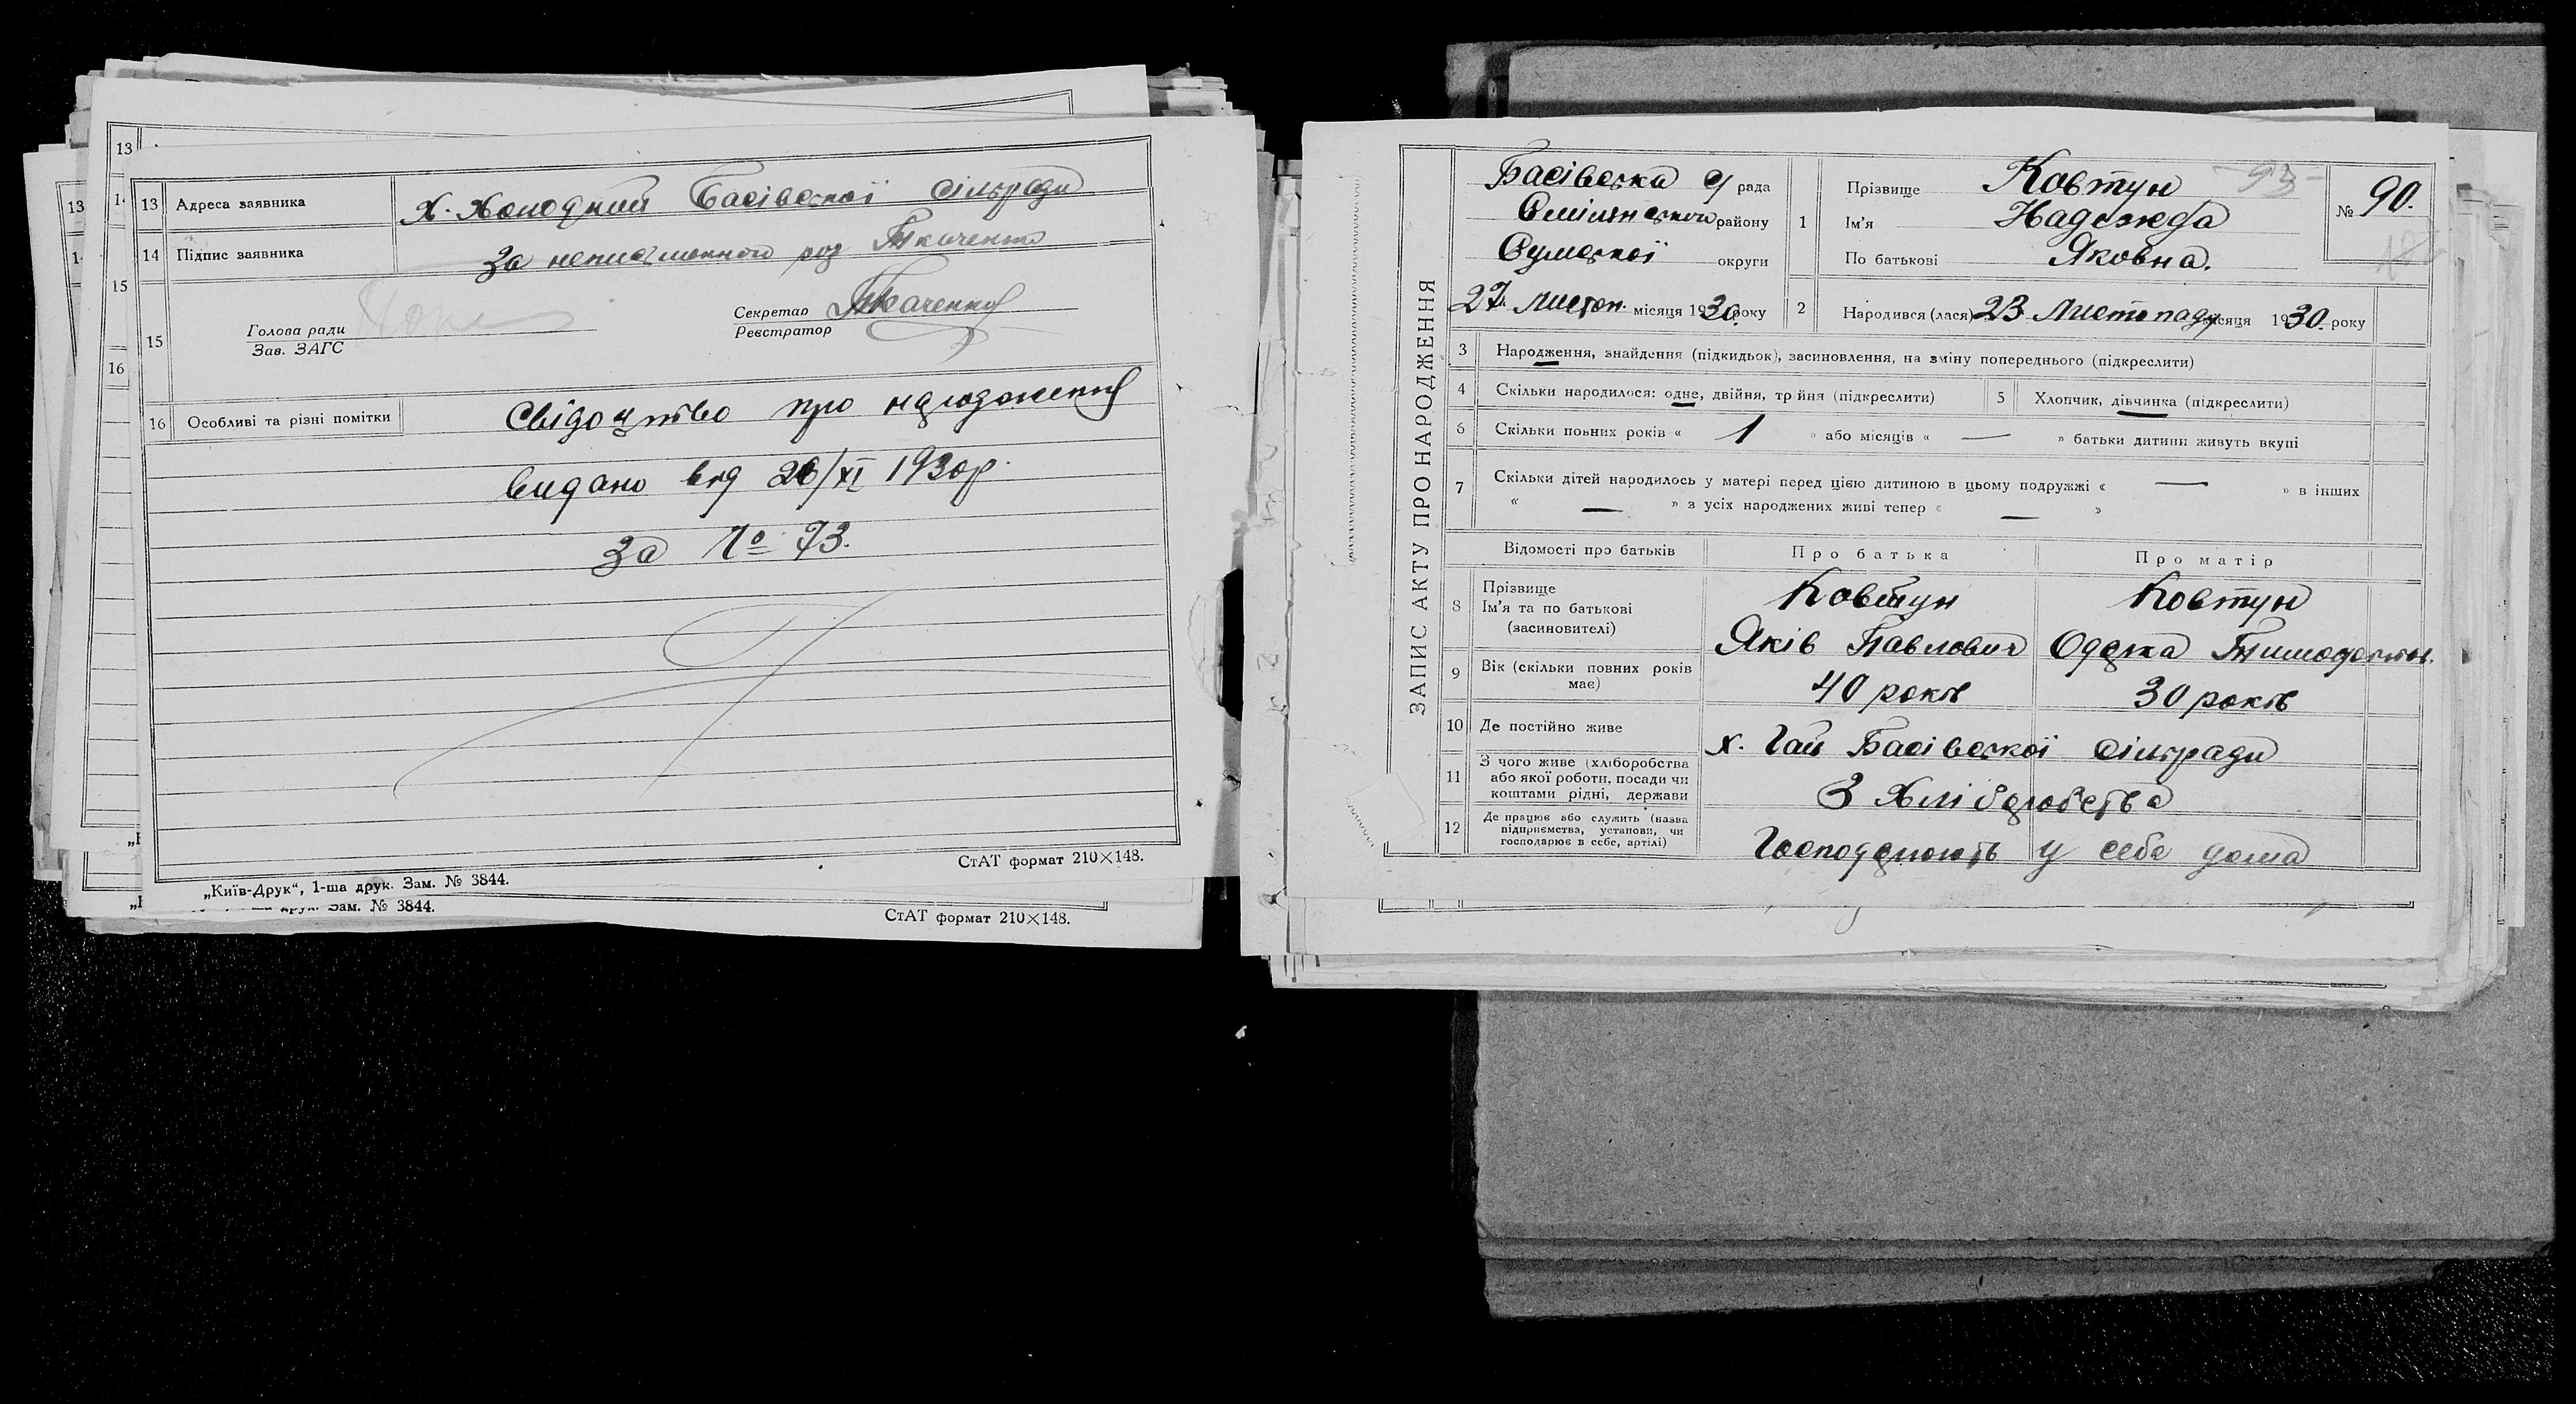 13 Адреса заявника х. Холодний Басівської сільради
14 Підпис заявника За неписьменного роз Ткаченко
15
Голова ради
Зав. ЗАГС
Секретар Ткаченко
Реєстратор
16 Особливі та різні помітки Свідоцтво про народження
видано від 26/XI 1930р.
за № 73.
СтАТ формат 210×148.
„Київ-Друк“, 1-ша друк. Зам. № 3844.
Зам. № 3844.
СтАТ формат 210×148.
ЗАПИС АКТУ ПРО НАРОДЖЕННЯ
Басівська с/рада
району
Сумської округи
27 листоп. місяця 1930 року
1 Прізвище Ковтун
Ім'я Надежда
По батькові Яковна.
93
№ 90.
2 Народився (лася) 23 Листопаду місяця 1930 року
3 Народження, знайдення (підкидьок), засиновлення, на зміну попереднього (підкреслити)
4 Скільки народилося: одне, двійня, тр йня (підкреслити)
5 Хлопчик, дівчинка (підкреслити)
6 Скільки повних років « 1 » або місяців « — » батьки дитини живуть вкупі
7 Скільки дітей народилось у матері перед цією дитиною в цьому подружжі « — » в інших
« — » з усіх народжених живі тепер « — »
Відомості про батьків Про батька Про матір
8 Прізвище Ковтун Ковтун
Ім'я та по батькові
(засиновителі) Яків Павлович
9 Вік (скільки повних років має) 40 років 30 років
10 Де постійно живе х. Гай Басівської сільради
11 З чого живе (хліборобства
або якої роботи, посади чи
коштами рідні, держави З Хліборобства
12 Де працює або служить (назва
підприємства, установи, чи
господарює в себе, артілі) Господарюють у себе дома